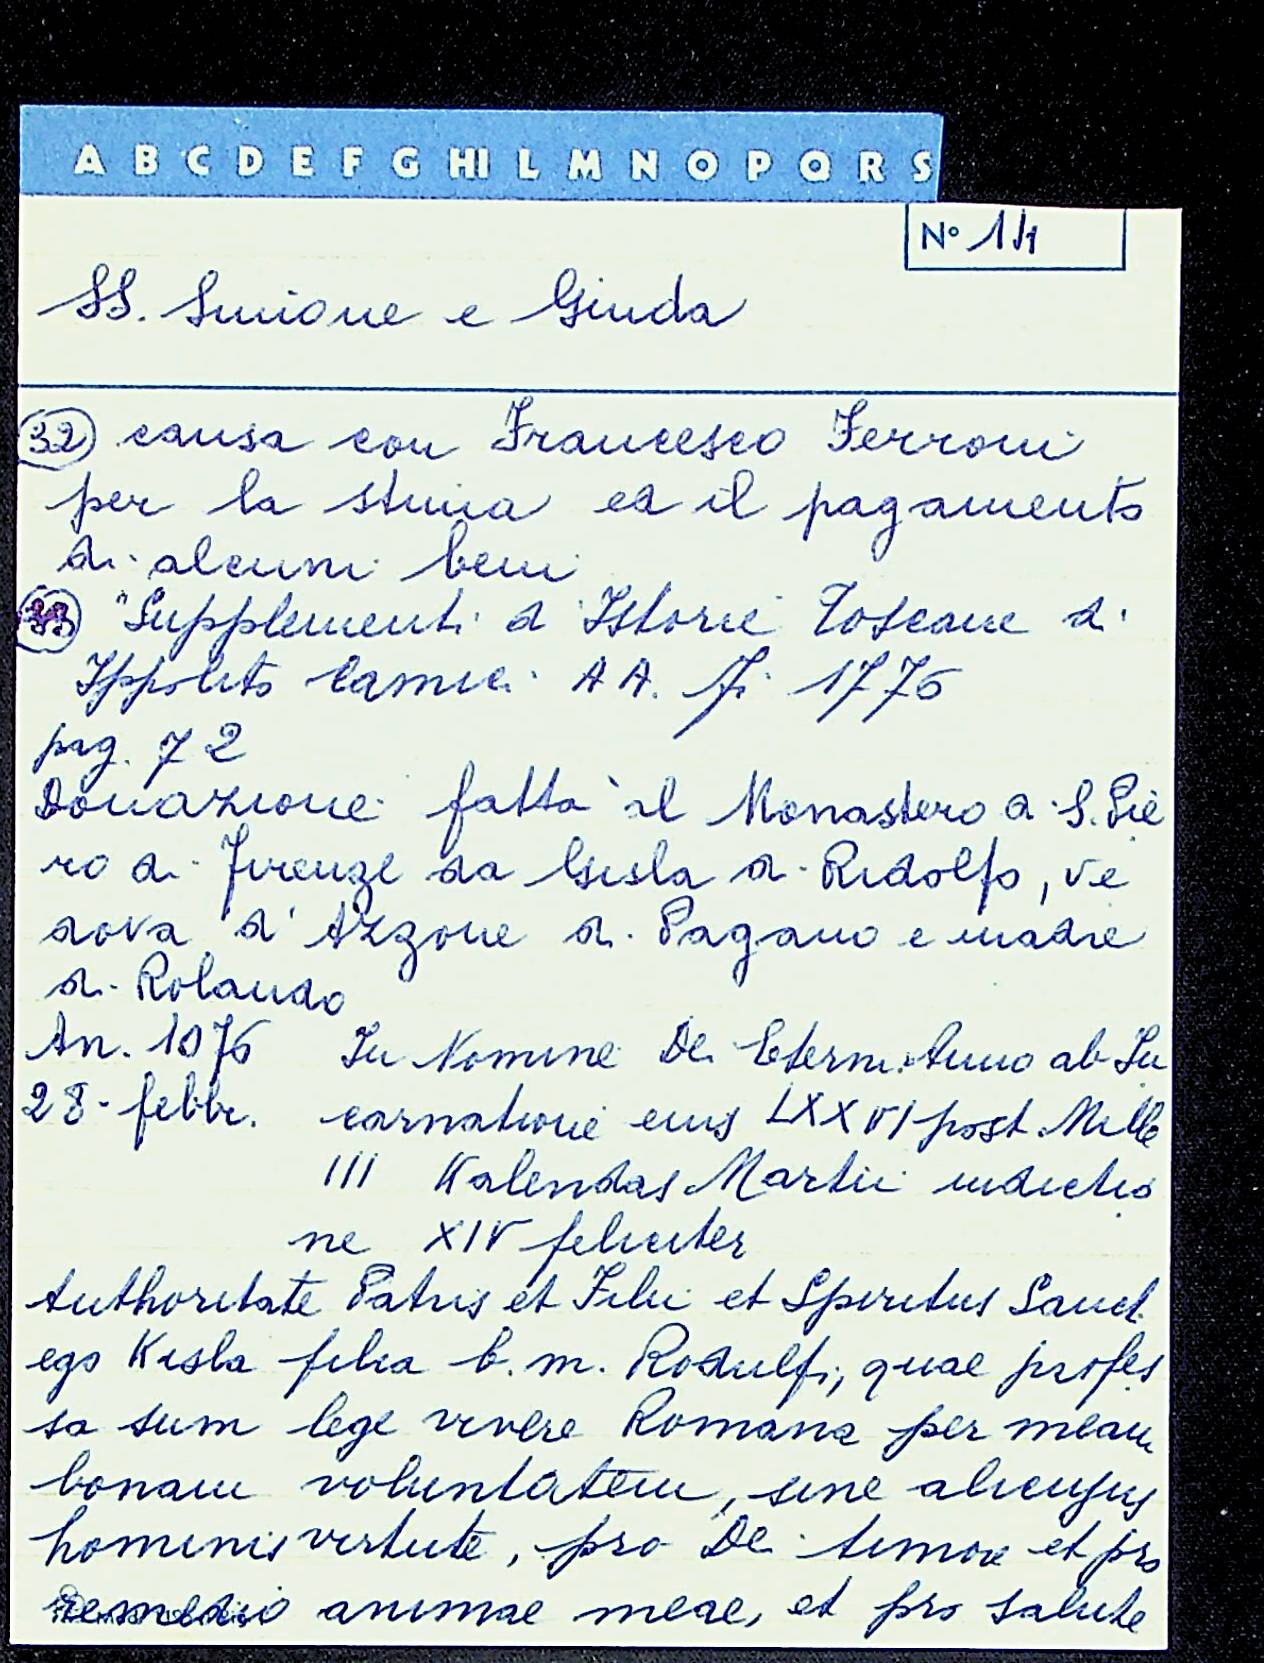 A B C D E F G HI L M N O P Q R S
N°
SS. Simone e Giuda
32 causa con Francesco Ferroni
per la stima ed il pagamento
di alcuni beni
33 "Supplementi d'Istorie Toscane di
Ippolito Camici AA. Fi 1776
pag. 72
Donazione fatta al Monastero di S. Pie
ro di Firenze da Gisla di Ridolfo, ve
dova d'Azzone di Pagano e madre
di Rolando
An. 1076 In Nomine Dei Eterni. Anno ab In
28 febbr. carnatione eius LXXVI post Mille
III Kalendas Martii indictio
ne XIV feliciter
Authoritate Patris et Filii et Spiritus Sancti
ego Kisla filia b. m. Rodulfi, quae profes
sa sum lege vivere Romana per meam
bonam voluntatem, sine alicujus
hominis virtute, pro Dei timore et pro
remedio animae meae, et pro salute